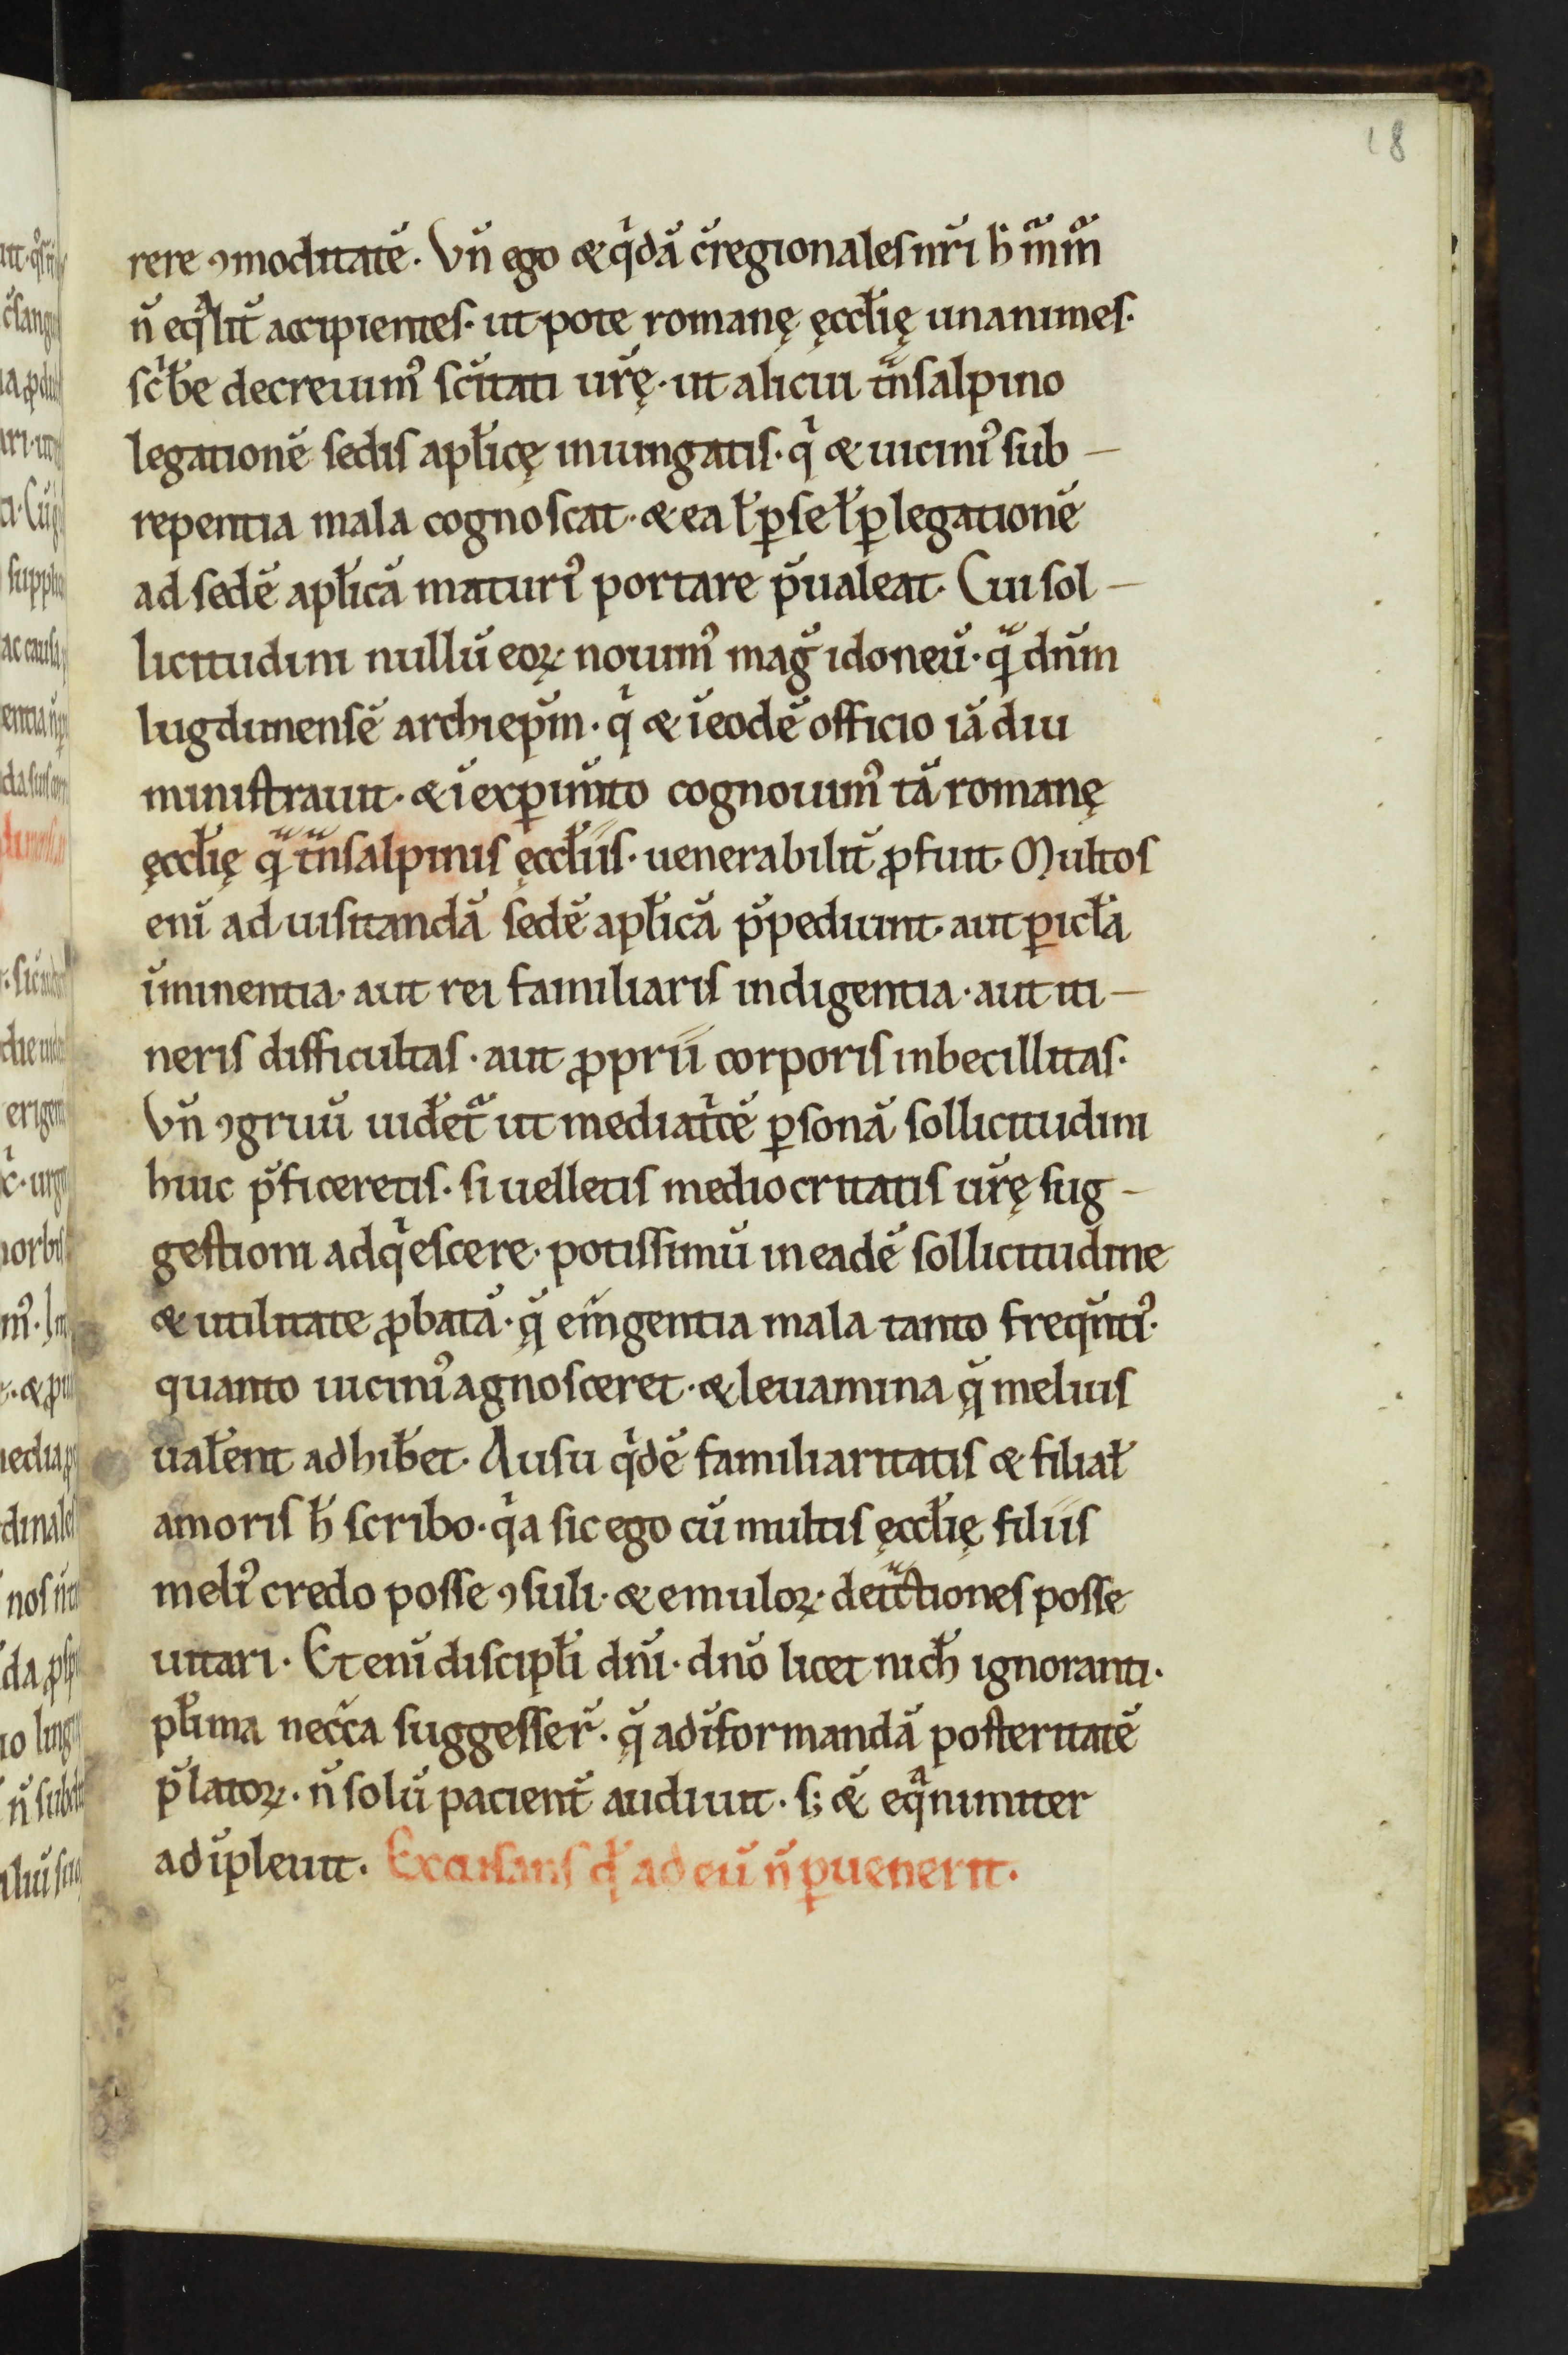 18
rere ꝯmoditatē. Vn̄ ego & qͥdā cͦregionales nr̄i h̄ mͣmͣ
n̄ eqͣlit̄ accipientes. ut pote romanę ęccl̄ię unanimes.
scͥb̄e decreuimꝰ sc̄itati ur̄ę. ut alicui tͣnsalpino
legationē sedis apl̄icę iniungatis. qͥ & uiciniꝰ sub –
repentia mala cognoscat. & ea l̄ ꝑ se l̄ ꝑ legationē
ad sedē apl̄icā maturiꝰ portare p̄ualeat. Cui sol –
licitudini nullū eoꝝ nouimꝰ maḡ idoneū. qͣ dn̄m
lugdunensē archiep̄m. qͥ & ī eodē officio iā diu
ministrauit. & ī exꝑim̄to cognouimꝰ tā romanę
ęccl̄ię qͣ tͣnsalpinis ęccl̄iis. uenerabilit̄ ꝓfuit. Multos
enī ad uisitandā sedē apl̄icā p̄pediunt. aut ꝑicl̄a
īminentia. aut rei familiaris indigentia. aut iti –
neris difficultas. aut ꝓprii corporis inbecillitas.
Vn̄ ꝯgruū uidet̄ ut mediatͥcē ꝑsonā sollicitudini
huic p̄ficeretis. si uelletis mediocritatis ur̄ę sug –
gestioni adqͥescere. potissimū in eadē sollicitudine
& utilitate ꝓbatā. q̄ em̄gentia mala tanto freqn̄tiꝰ.
quanto uiciniꝰ agnosceret. & leuamina q̄ melius
ual̄ent adhib̄et. Ausu qͥdē familiaritatis & filial̄
amoris h̄ scribo. qͥa sic ego cū multis ęccl̄ię filiis
meliꝰ credo posse ꝯsuli. & emuloꝝ. detͣctiones posse
uitari. Et enī discipl̄i dn̄i. dn̄o licet nich̄ ignoranti.
pl̄ima necc̄a suggesser̄. q̄ ad īformandā posteritatē
p̄latoꝝ. n̄ solū pacient̄ audiuit. s; &̄ eqͣnimiter
adīpleuit. Excusans qd̄ ad eū n̄ ꝑuenerit.